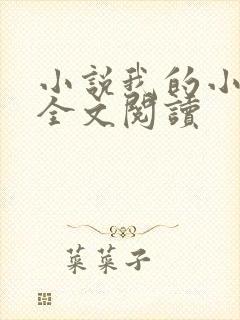 小说我的小
全文閱讀
菜菜子